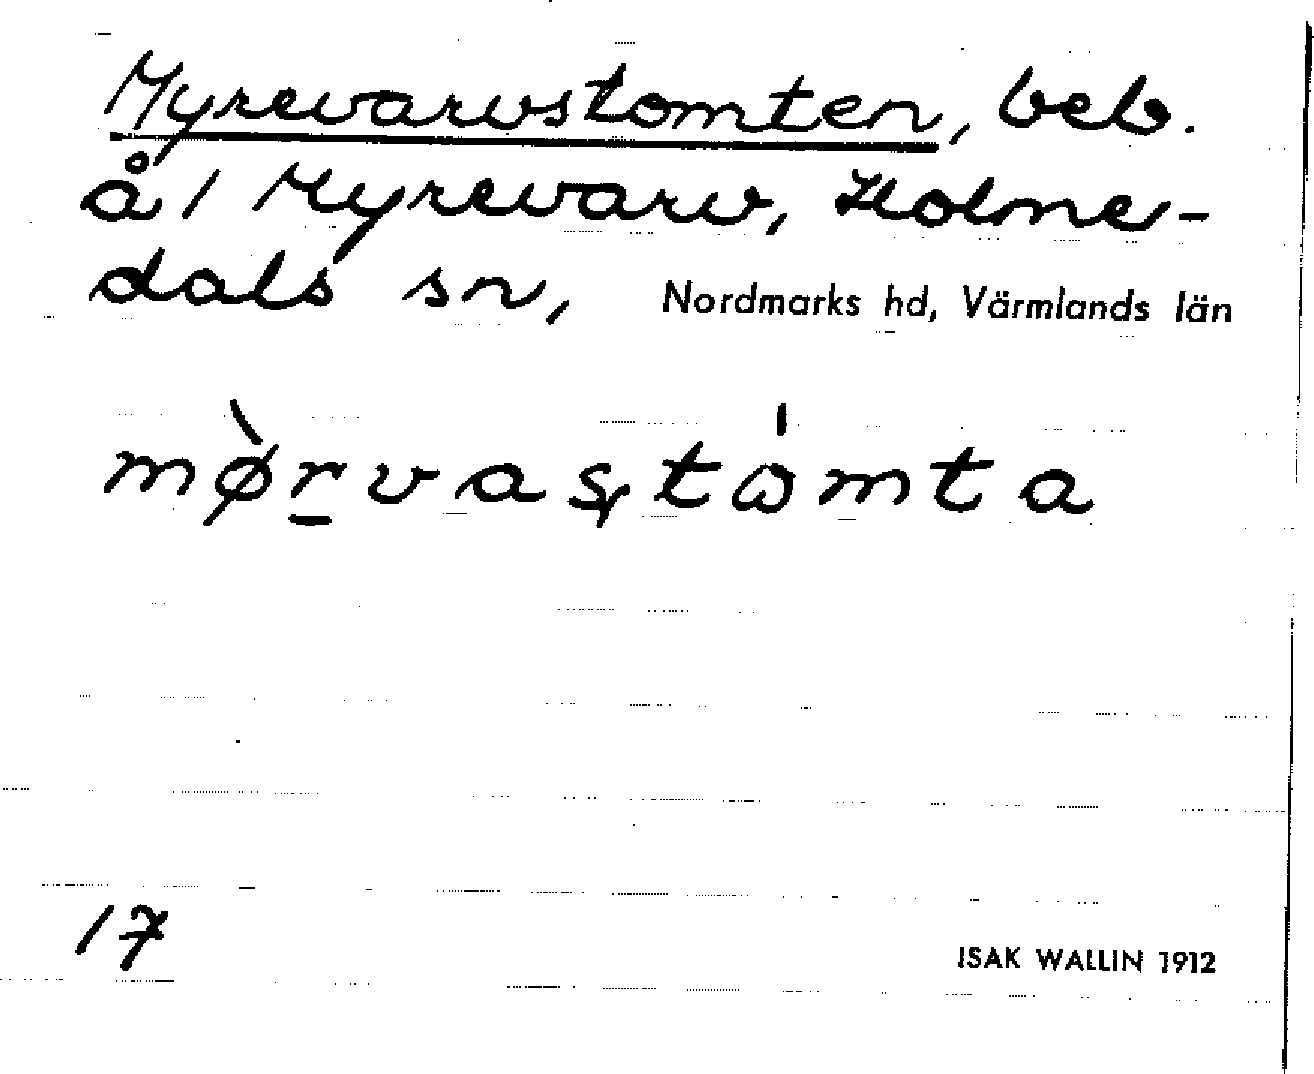 Myrevarvstomten, beb.
å 1 Myrevarv, Holme-
dals sn, Nordmarks hd, Värmlands län
mø̀r̲vaștω̍mta
17
ISAK WALLIN 1912